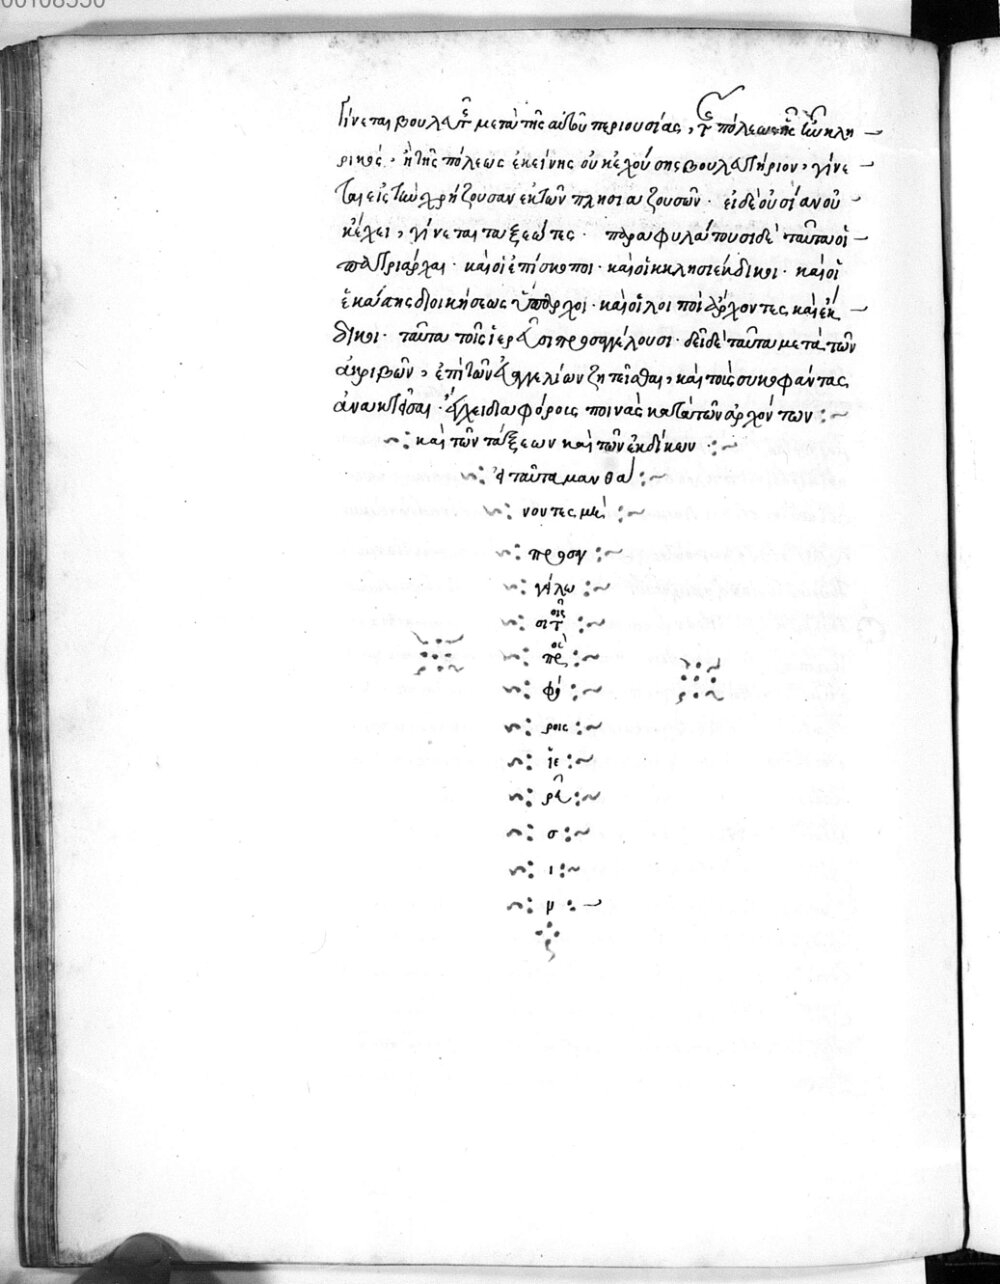 γίνεται βουλευτὴς μετὰ τῆς αὐτοῦ περιουσίας, τῆς πόλεως ἧς ἦν κλη
ρικός, ἢ τῆς πόλεως ἐκείνης οὐκ ἐχούσης βουλευτήριον, γίνε
ται εἰς τὴν χρῄζουσαν ἐκ τῶν πλησιαζουσῶν · εἰ δὲ οὐσίαν οὐ
κ ἔχει, γίνεται ταξεώτης · παραφυλάττουσι δὲ ταῦτα οἱ
πατριάρχαι · καὶ οἱ ἐπίσκοποι · καὶ οἱ ἐκκλησιέκδικοι · καὶ οἱ
ἑκάστης διοικήσεως ὕπαρχοι · καὶ οἱ λοιποὶ ἄρχοντες καὶ ἔκ
δικοι · ταῦτα τοῖς ἱερεῦσι προσαγγέλουσι · δεῖ δὲ ταῦτα μετὰ τῶν
ἀκριβῶν, ἐπὶ τῶν εὐαγγελίων ζητεῖσθαι, καὶ τοὺς συκοφάντας
ἀνακτῆσαι · ἔχει διαφόροις ποινὰς κατὰ τῶν ἀρχόντων
καὶ τῶν τάξεων καὶ τῶν ἐκδίκων
εἰ ταῦτα μανθά
νοντες μὴ
προσαγ
γέλω
σι τοῖς
προς
φό
ροις
ἱε
ρεῦ
σ
ι
μ